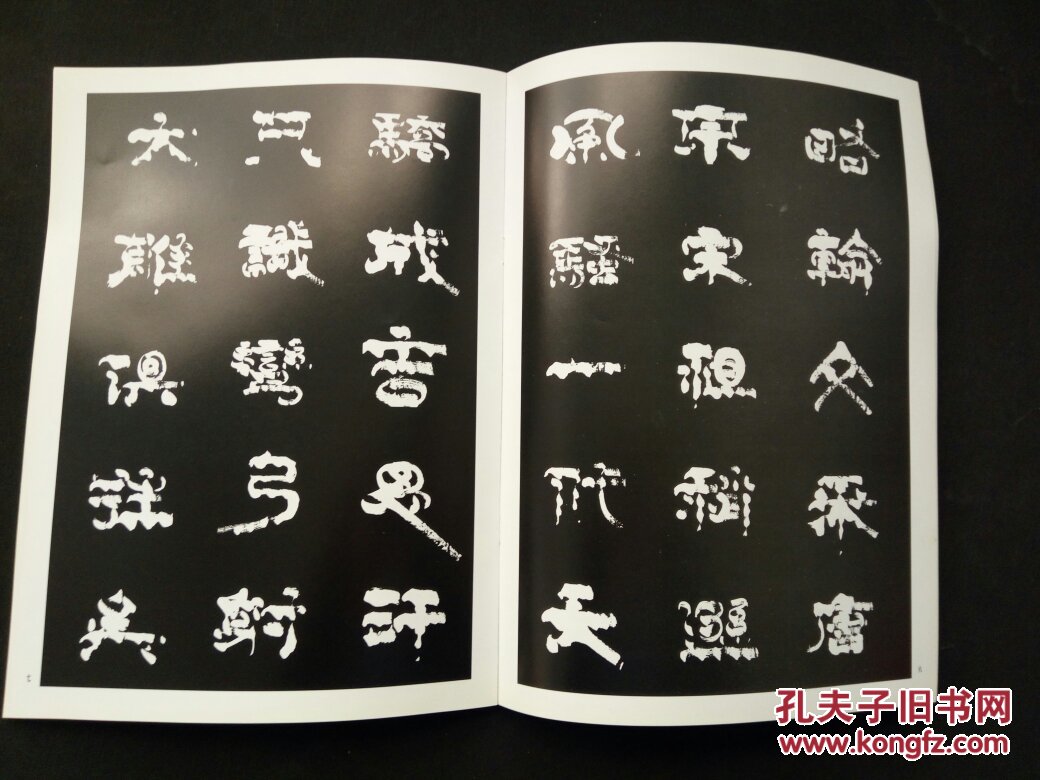 略輸文采唐
宗宋祖稍遜
風騷一代天
驕成吉思汗
只識彎弓射
大雕俱往矣
孔夫子旧书网
www.kongfz.com